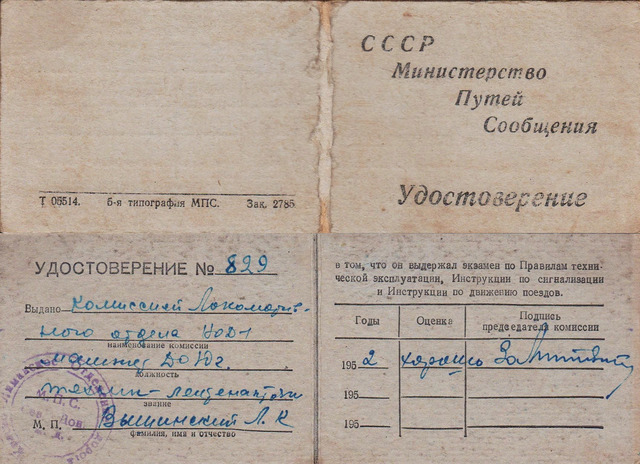 СССР
Министерство
Путей
Сообщения
Удостоверение
Т 05514. 6-я типография МПС. Зак. 2785
УДОСТОВЕРЕНИЕ № 829
Выдано комиссией Локомотив-
ного отдела
наименование комиссии
должность
техник-лейтенант
звание
М. П. Вышинский Л. К
фамилия, имя и отчество
М. П. С.
в том, что он выдержал экзамен по Правилам техни-
ческой эксплуатации, Инструкции по сигнализации
и Инструкции по движению поездов.
Годы Оценка Подпись
председателя комиссии
195 2 хорошо
195
195